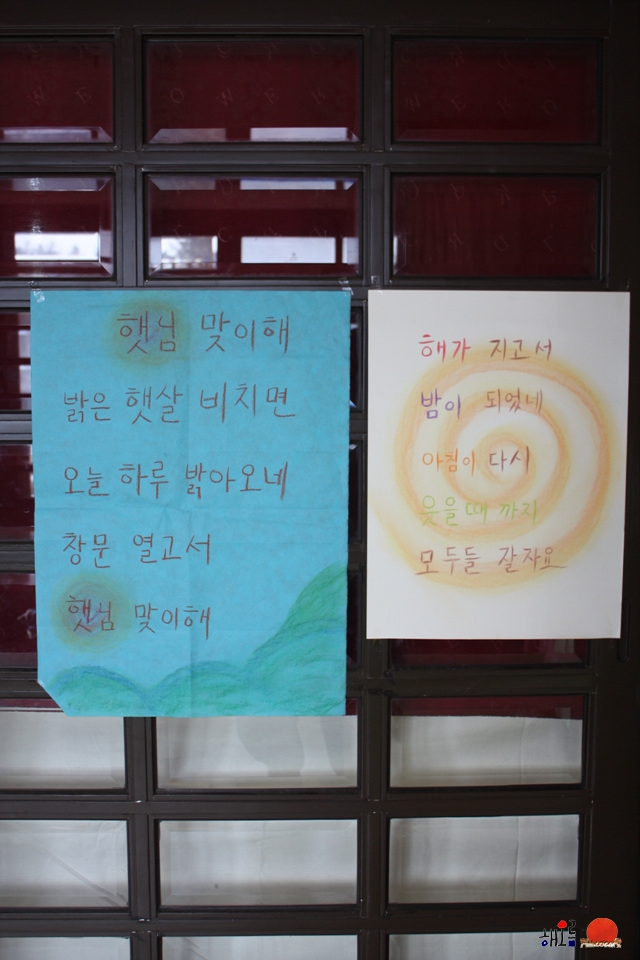 햇님 맞이해
밝은 햇살 비치면
오늘 하루 밝아오네
창문 열고서
햇님 맞이해
해가 지고서
밤이 되었네
아침이 다시
웃을때 까지
모두들 잘자요
해오름